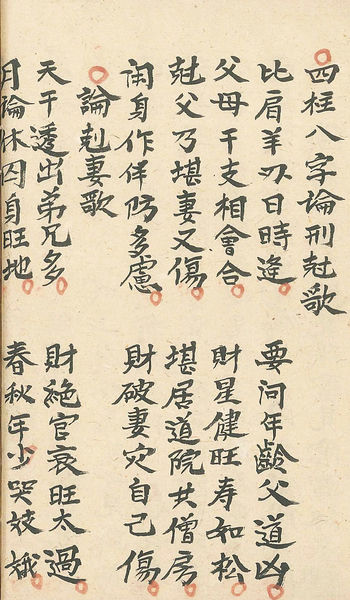 四柱八字論刑尅歌
比肩羊刃日時逢 要问年齡父道凶
父母干支相會合 財星健旺寿如松
尅父乃堪妻又傷 堪居道院共僧房
闲身作伴防多慮 財破妻灾自己傷
論尅妻歌
天干透出弟兄多 財絶官衰旺太過
月論休囚身旺地 春秋年少哭姣娥